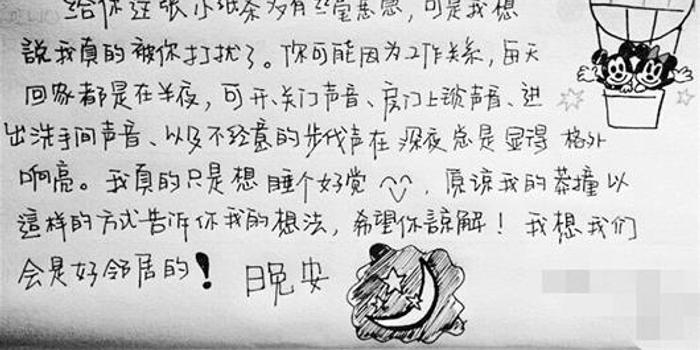 给你这张小纸条没有丝毫恶意，可是我想
說我真的被你打扰了。你可能因为工作关系，每天
回家都是在半夜，可开、关门声音、房门上锁声音、进
出洗手间声音、以及不经意的步伐声在深夜总是显得格外
响亮。我真的只是想睡个好觉，原谅我的莽撞以
這样的方式告诉你我的想法，希望你諒解！我想我们
会是好邻居的！晚安